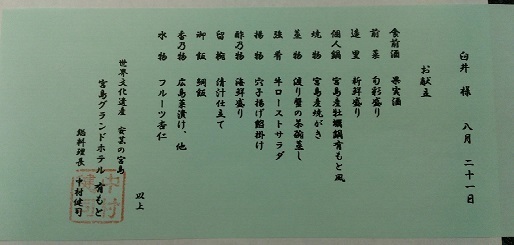 臼井 様 八月 二十一日
お献立
食前酒 果実酒
前菜 旬彩盛り
造里 新鮮盛り
個人鍋 宮島産牡蠣鍋有もと風
焼物 宮島産焼がき
蒸物 渡り蟹の茶碗蒸し
強肴 牛ローストサラダ
揚物 穴子揚げ餡掛け
酢乃物 海鮮盛り
留椀 清汁仕立て
御飯 鯛飯
香乃物 広島菜漬け、他
水物 フルーツ杏仁
以上
世界文化遺産 安芸の宮島
宮島グランドホテル 有もと
総料理長 中村健司